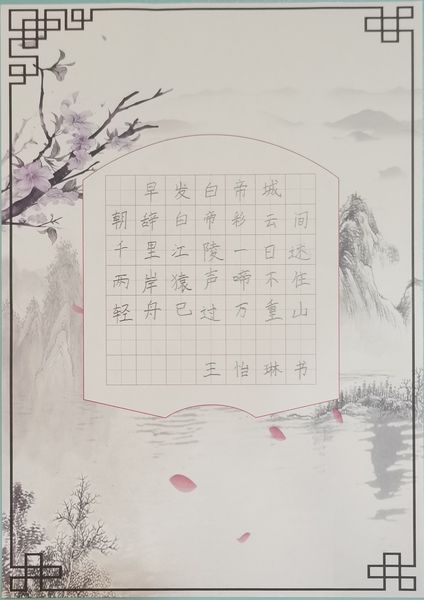 早发白帝城
朝辞白帝彩云间
千里江陵一日还
两岸猿声啼不住
轻舟已过万重山
王怡琳书